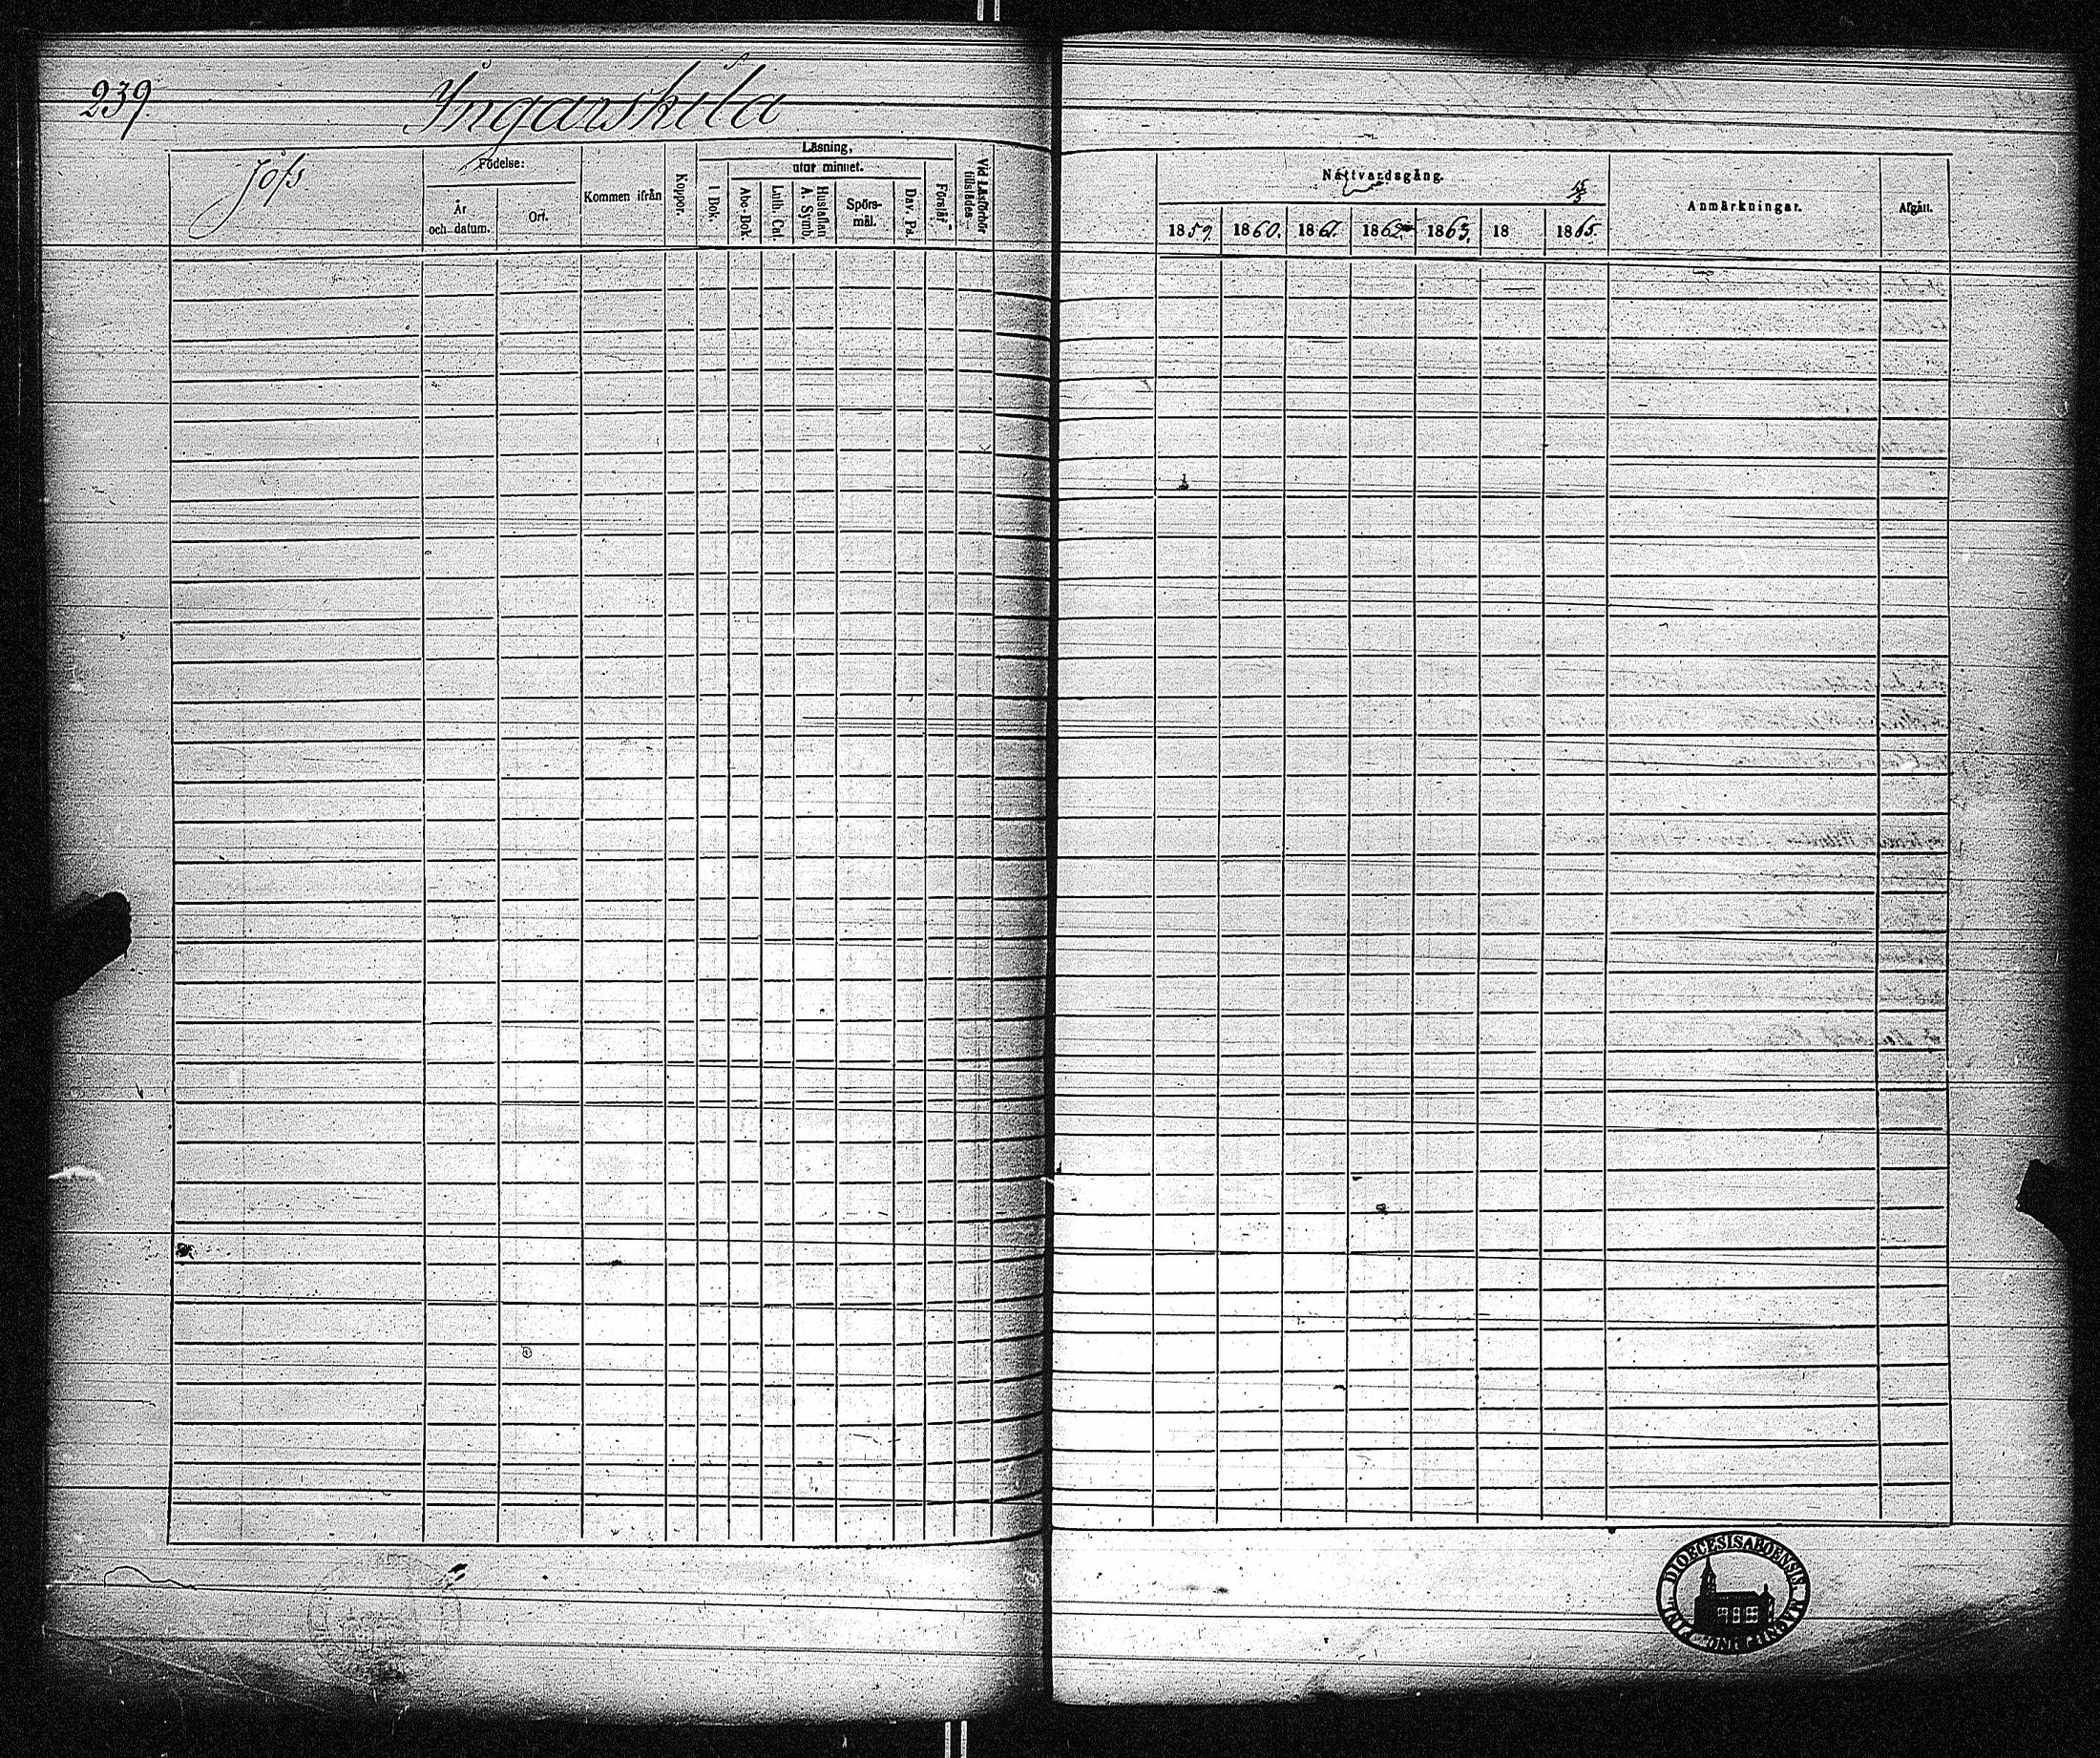 239.
Ingarskila
Jofs
Födelse:
År
och datum.
Ort.
Kommen ifrån
Koppor.
Läsning,
utur minnet.
I Bok.
Abc-Bok.
Luth. Cat.
Hustaflan
A. Symb.
Spörs-
mål.
Dav. Ps.
Förstår
Vid Läsförhör
tillstädes
Nattvardsgång.
1859.
1860.
1861.
1862.
1863.
18
1865.
Anmärkningar.
Afgått.
DIOECESIS ABOENSIS.